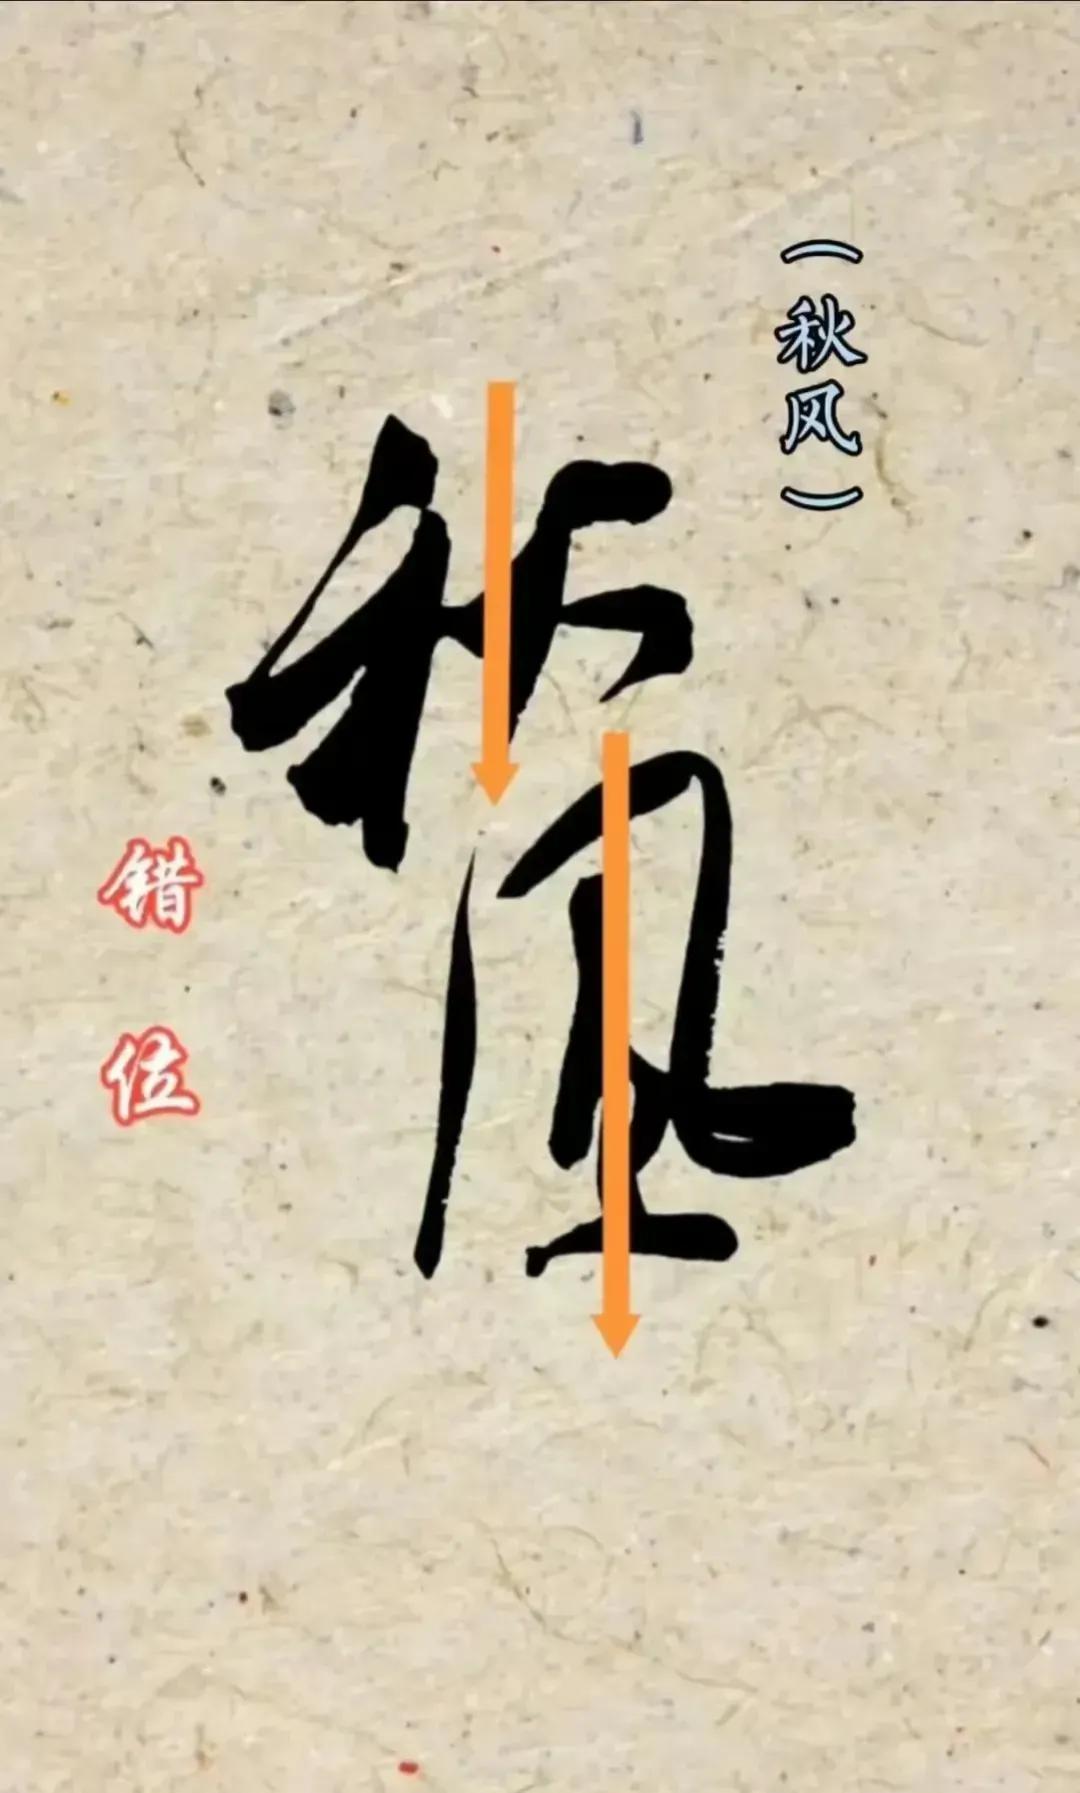 （秋风）
秋風
错位